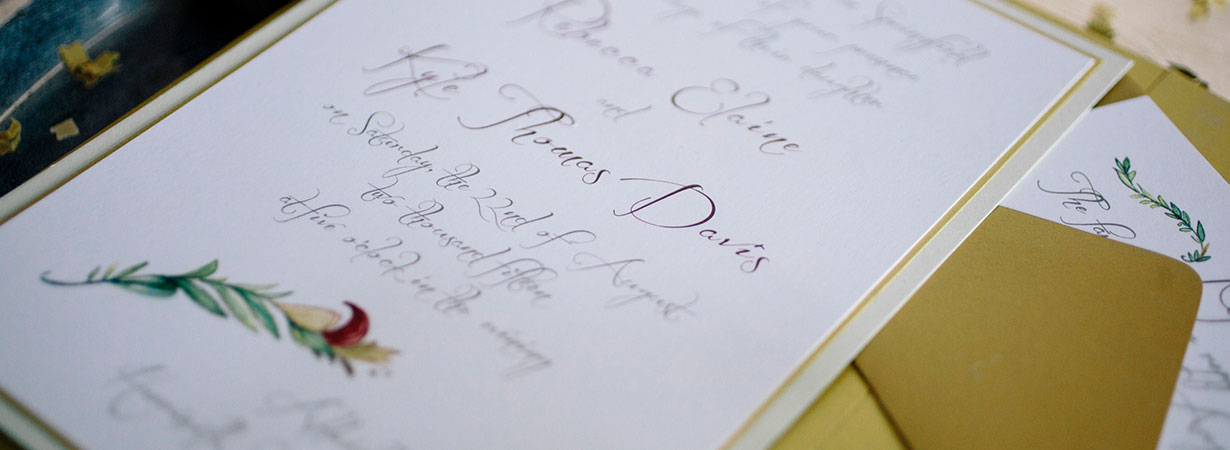 of their daughter
Rebecca Elaine
and
Kyle Thomas Davis
on Saturday, the 22nd of August
two thousand fifteen
at five o'clock in the evening
The